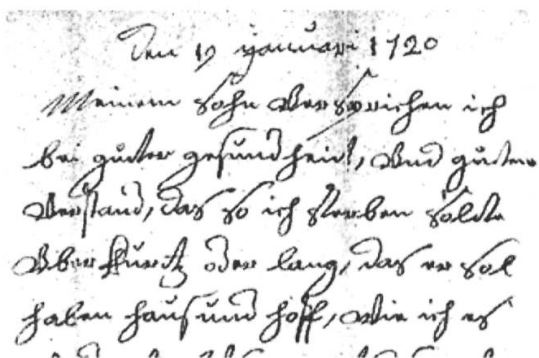 Den 19 januari 1720
Meinem Sohn Versprichen ich
bei guter gesundheidt, Vnd guten
Verstand, das so ich sterben solte
Vber kurtz oder lang, das er sol
haben hauß und hoff, wie ich es